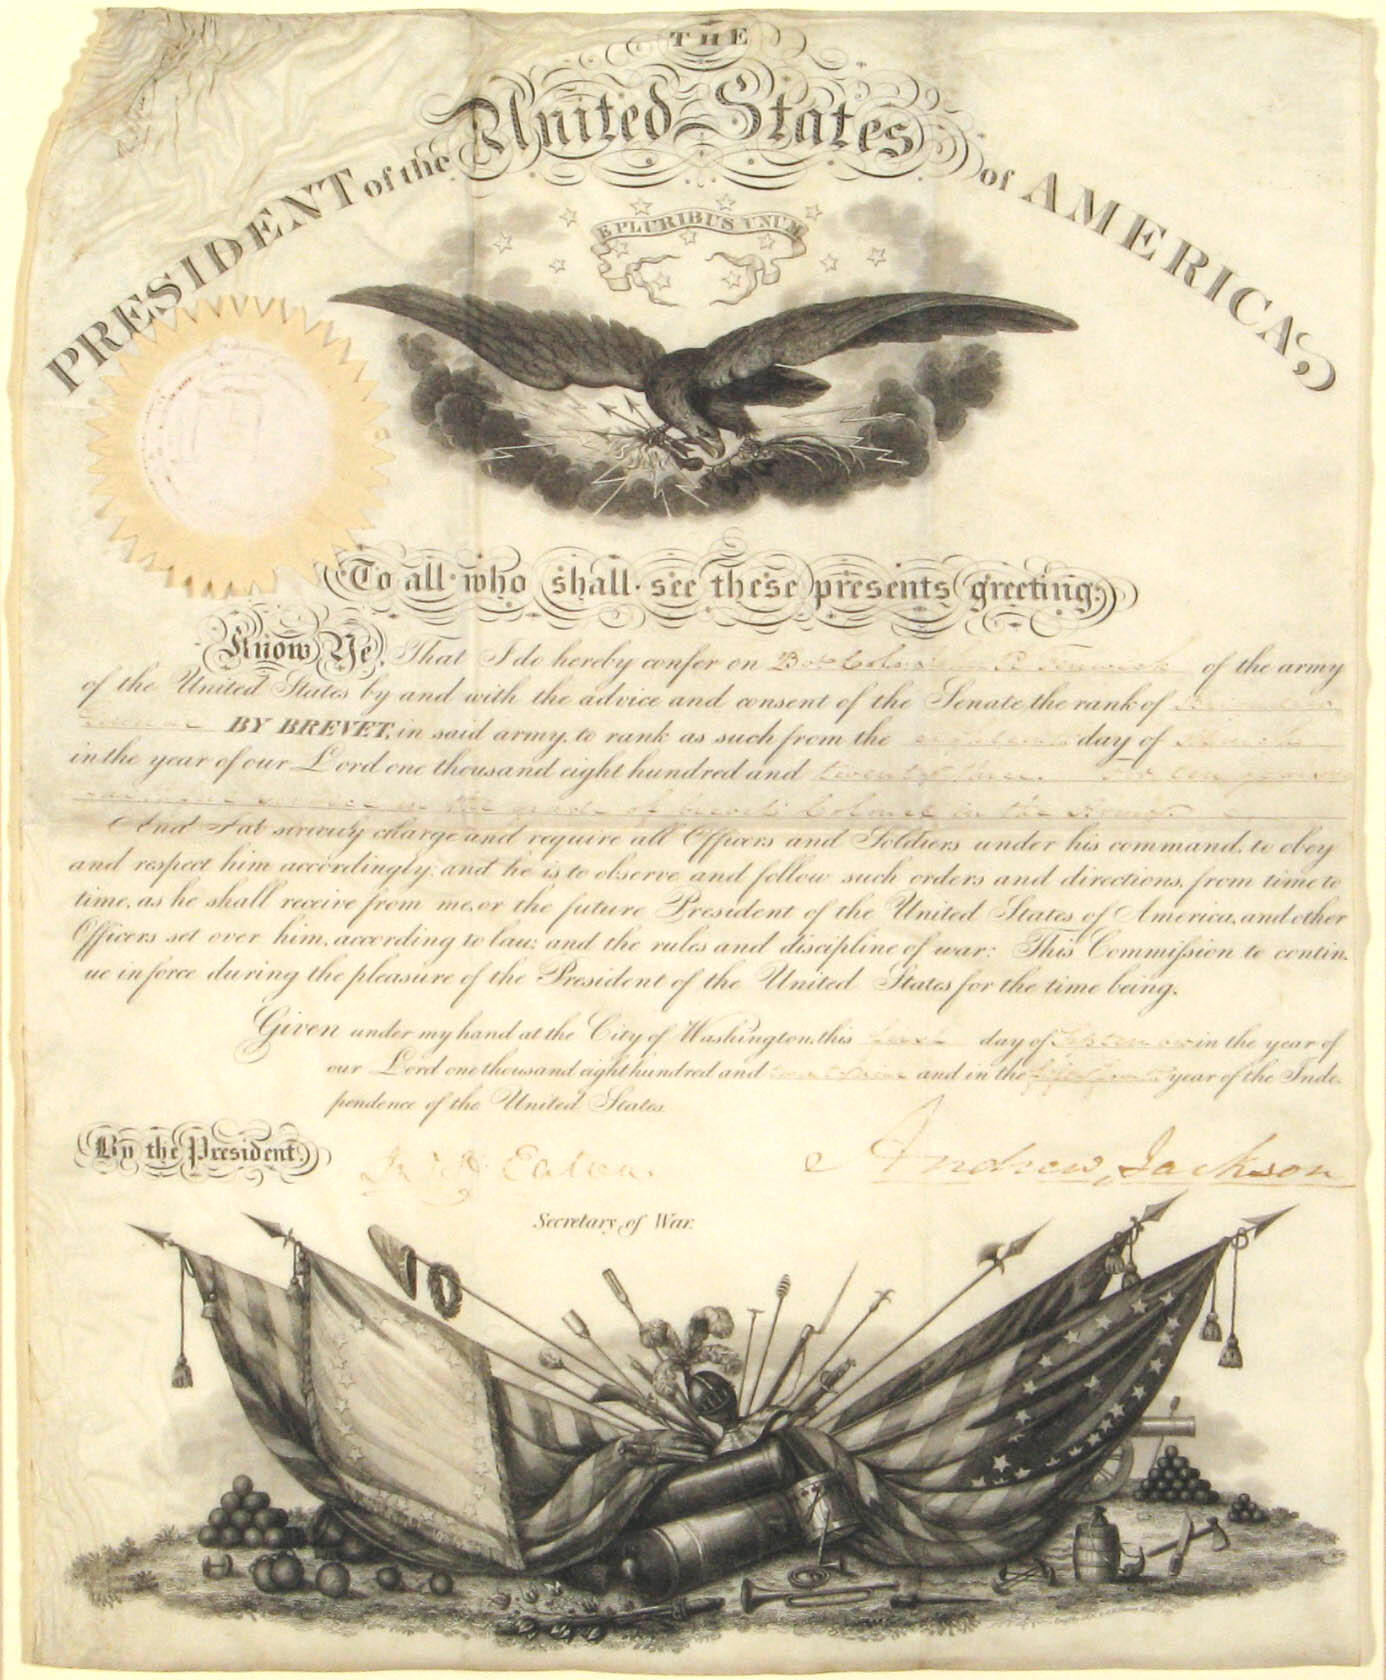 THE
PRESIDENT of the United States of AMERICA,
E PLURIBUS UNUM
To all who shall see these presents greeting:
Know Ye, That I do hereby confer on Bvt Col. R. Fenwick of the army
of the United States by and with the advice and consent of the Senate the rank of Brigadier
General BY BREVET, in said army, to rank as such from the eighteenth day of March
in the year of our Lord one thousand eight hundred and twenty three. for ten years
service in the grade of brevet Colonel in the Army.
And I do strictly charge and require all Officers and Soldiers under his command, to obey
and respect him accordingly; and he is to observe and follow such orders and directions, from time to
time, as he shall receive from me, or the future President of the United States of America, and other
Officers set over him, according to law; and the rules and discipline of war: This Commission to contin
ue in force during the pleasure of the President of the United States for the time being.
Given under my hand at the City of Washington, this first day of September in the year of
our Lord one thousand eight hundred and and in the year of the Inde-
pendence of the United States.
By the President,
J. H. Eaton. Andrew Jackson
Secretary of War.